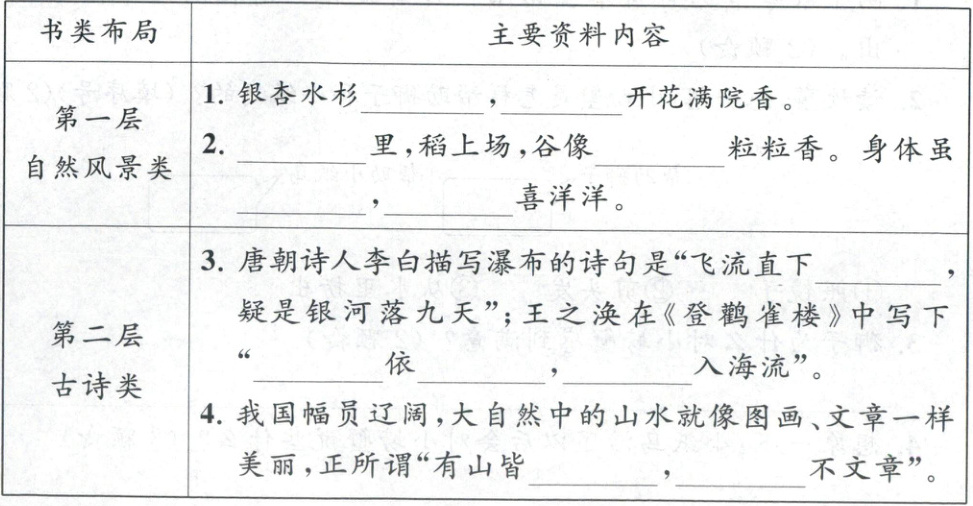 书类布局 主要资料内容
第一层
自然风景类
1. 银杏水杉______,______开花满院香。
2. ______里,稻上场,谷像______粒粒香。身体虽
______,______喜洋洋。
第二层
古诗类
3. 唐朝诗人李白描写瀑布的诗句是“飞流直下______,
疑是银河落九天”;王之涣在《登鹳雀楼》中写下
“______依______,______入海流”。
4. 我国幅员辽阔,大自然中的山水就像图画、文章一样
美丽,正所谓“有山皆______,______不文章”。